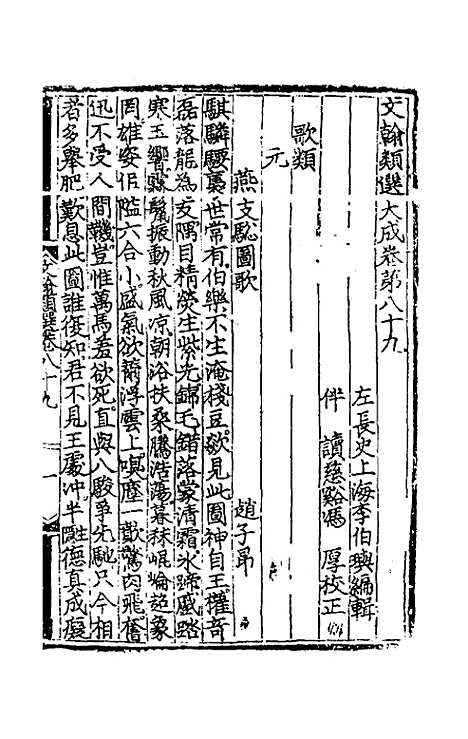 文翰類選大成卷第八十九
左長史上海李伯璵編輯
伴讀慈谿馮厚校正
歌類
元
燕支驄圖歌 趙子昂
騏驎騕褭世常有伯樂不生淹棧豆欲見此圖神自王權奇
磊落龍為友隅目精熒生紫光錦毛錯落蒙清霜氷蹄蹙踏
寒玉響鬃鬣振動秋風凉朝浴扶桑騰浩蕩暮秣崐崘詔象
罔雄姿伛隘六合小盛氣欲籋浮雲上嘶塵一歕驚肉飛奮
迅不受人間鞿豈惟萬馬羞欲死直與八駿爭先馳只今相
者多舉肥歎息此圖誰復知君不見王處冲半癖德真成癡
文翰類選卷八十九
一